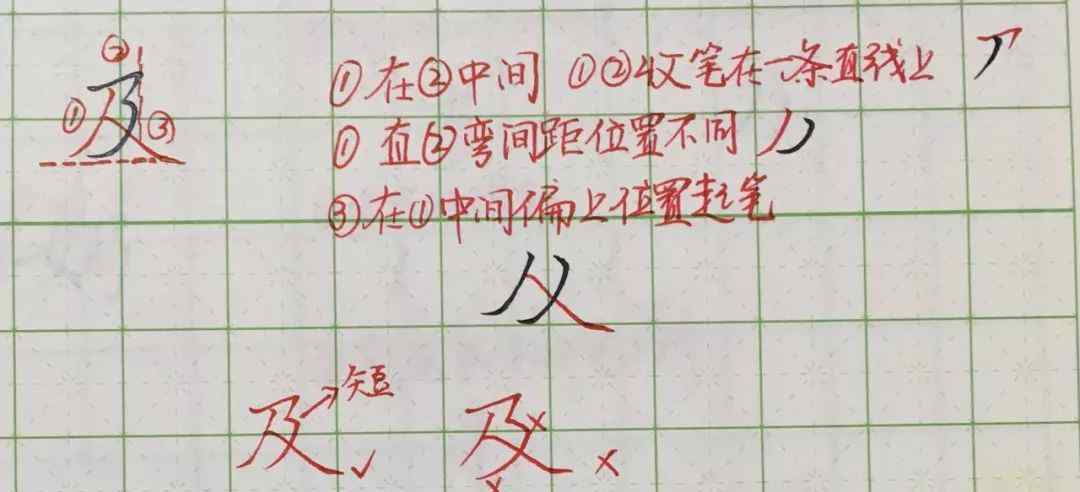 ② ① 及 ③
①在②中间 ①②收笔在一条直线上
① 直②弯间距位置不同
③在①中间偏上位置起笔
及→短 ✓ 及 × × ×